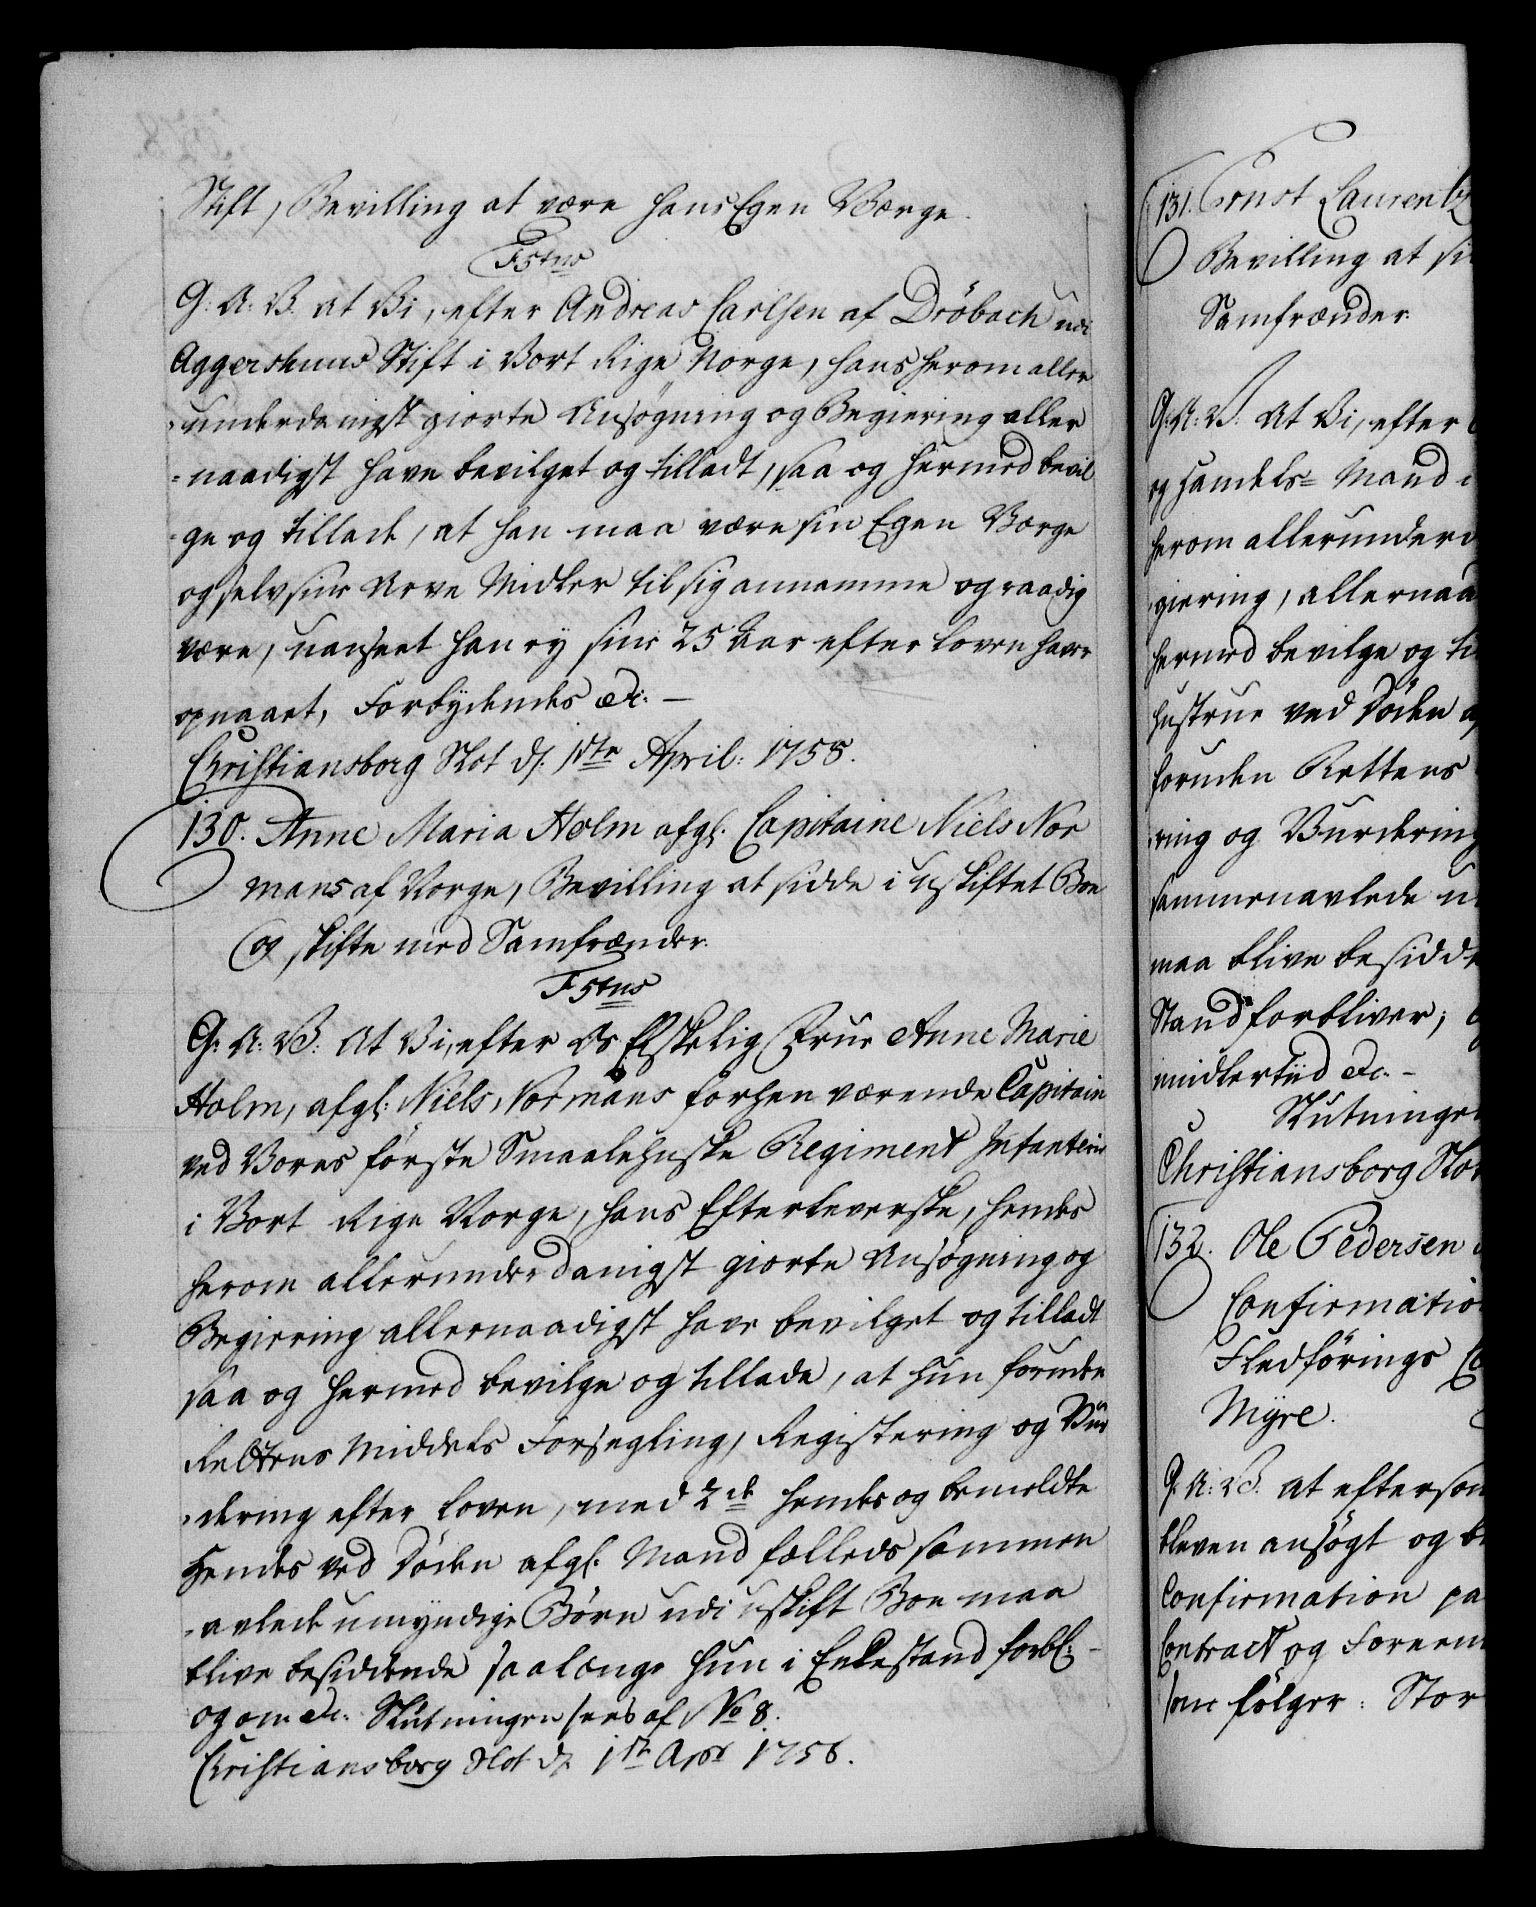 Stift, Bevilling at være hans Egen Værge.
F5tus
G: A: V. at Vi, efter Andreas Carlsen af Dröbach udi
Aggershuus Stift i Vort Rige Norge, hans herom aller
-underdanigst giorte Ansøgning og Begiering aller
-naadigst have bevilget og tilladt, saa og hermed bevil
-ge og tillade, at han maa være sin Egen Værge
og selv sine Arve Midler til sig annamme og raadig
være, uanseet han ey sine 25 Aar efter Loven haver
opnaaet, Forbydendes &c: —
Christiansborg Slot d: 1ste April: 1758.
130. Anne Maria Holm afgl: Capitaine Niels Nor
mans af Norge, Bevilling at sidde i uskiftet Boe
og skifte med Samfrænder.
F5tus
G: A: V: At Vi, efter Os Elskelig Frue Anne Marie
Holm, afgl: Niels Normans forhen værende Capitain
ved Vores første Smaalehnske Regiment Infanterie
i Vort Rige Norge, hans Efterleverske, hendes
herom allerunderdanigst giorte Ansøgning og
Begiering allernaadigst have bevilget og tilladt
saa og hermed bevilge og tillade, at hun foruden
Rettens Middels Forsegling, Registering og Vur
-dering efter Loven, med 2de hendes og bemeldte
Hendes ved Døden afgl: Mand fælleds sammen
-avlede umyndige Børn udi uskift Boe maa
blive besiddende saalænge hun i Enkestand forbl: —
og om &c. Slutningen sees af No 8.
Christiansborg Slot d: 1ste Apr 1758.
131. Ernst Laurentz
Bevilling at si
Samfrænder.
G: A: V. At Vi, efter
og Handels- Mand i
herom allerunderd
giering, allernaa
hermed bevilge og ti
hustrue ved Døden a
foruden Rettens
ring og Vurdering
sammenavlede u
maa blive besidde
Stand forbliver; o
imidlertiid &c. -
Slutningen
Christiansborg Slot
132. Ole Pedersen
Confirmation
Fledførings Co
Myre.
G: A: V. at eftersom
bleven ansøgt og be
Confirmation paa
Contract og Foreen
som følger: Stor